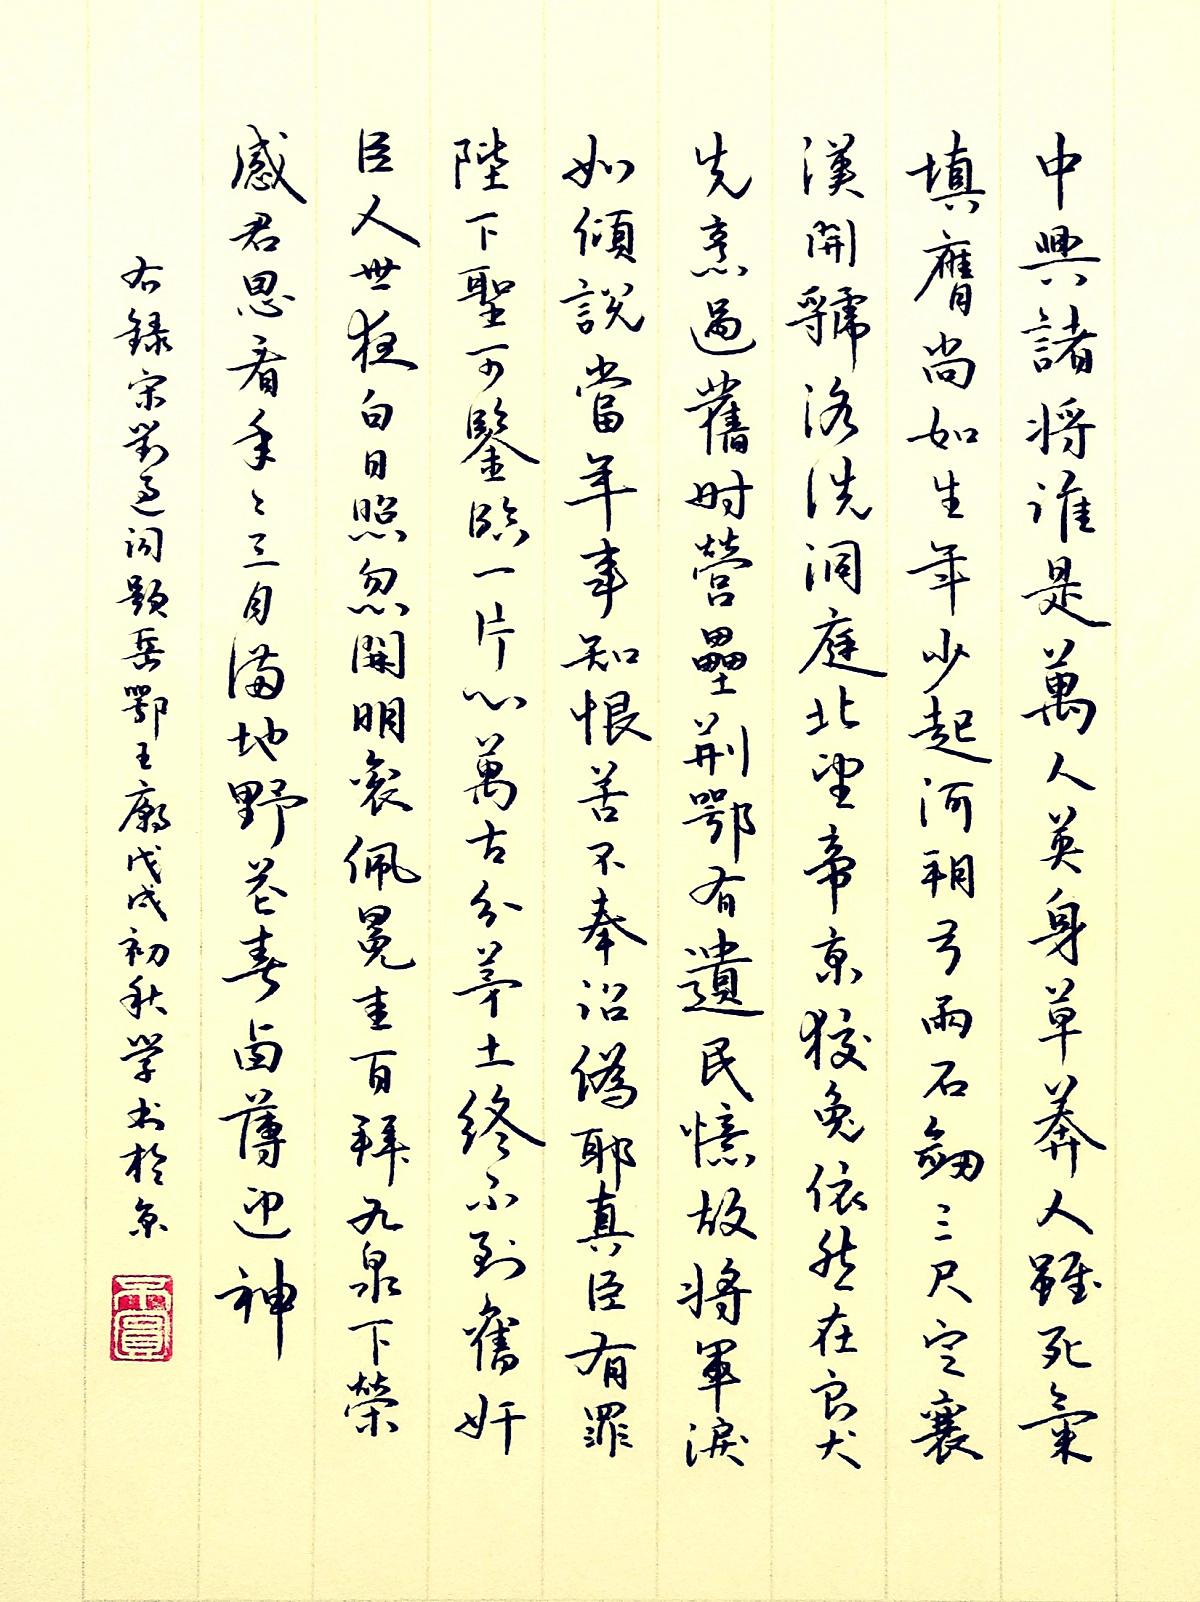 中興諸将谁是萬人英身草莽人雖死氣
填膺尚如生年少起河朔弓兩石劒三尺定襄
漢開虢洛洗洞庭北望帝京狡兔依然在良犬
先烹過舊时營壘荆鄂有遺民憶故将軍淚
如傾說當年事知恨苦不奉詔偽耶真臣有罪
陛下聖可鑒臨一片心萬古分茅土終不到舊奸
臣人世夜白日照忽開明衮佩冕圭百拜九泉下榮
感君恩看年〻三月滿地野花春鹵薄迎神
右録宋劉過词題岳鄂王廟戊戌初秋学书於京